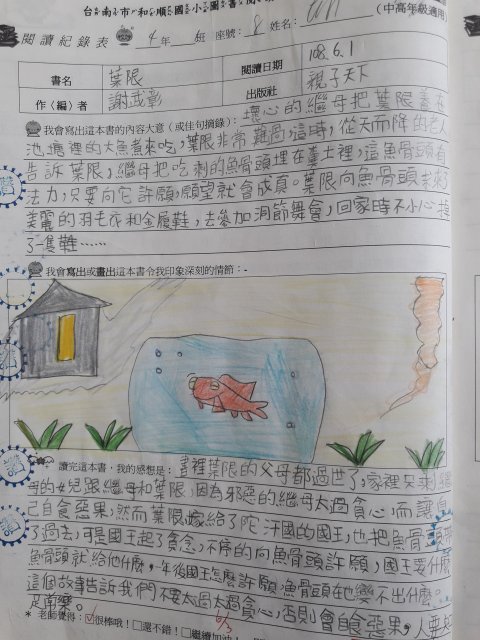 台南市和順國小圖書閱
(中高年級適用)
閱讀紀錄表 4年 班 座號：8 姓名：
書名 葉限 閱讀日期 108.6.1
作〈編〉者 謝武彰 出版社 親子天下
我會寫出這本書的內容大意（或佳句摘錄）：壞心的繼母把葉限養在
池塘裡的大魚煮來吃，葉限非常難過，這時，從天而降的老人
告訴葉限，繼母把吃剩的魚骨頭埋在糞土裡，這魚骨頭有
法力，只要向它許願，願望就會成真。葉限向魚骨頭要來了
美麗的羽毛衣和金屨鞋，去參加洞節舞會，回家時不小心掉
了一隻鞋……
我會寫出或畫出這本書令我印象深刻的情節：
讀完這本書，我的感想是：書裡葉限的父母都過世了，家裡只剩繼
母的女兒跟繼母和葉限，因為邪惡的繼母太過貪心，而讓自
己自食惡果，然而葉限嫁給了陀汗國的國王，也把魚骨頭帶
了過去，可是國王起了貪念，不停的向魚骨頭許願，國王要什麼
魚骨頭就給他什麼，一年後國王怎麼許願漁骨頭在也變不出什麼。
這個故事告訴我們不要太過太過貪心，否則會自食惡果，人要知
足常樂。
* 老師覺得：☑很棒哦！□還不錯！□繼續加油！